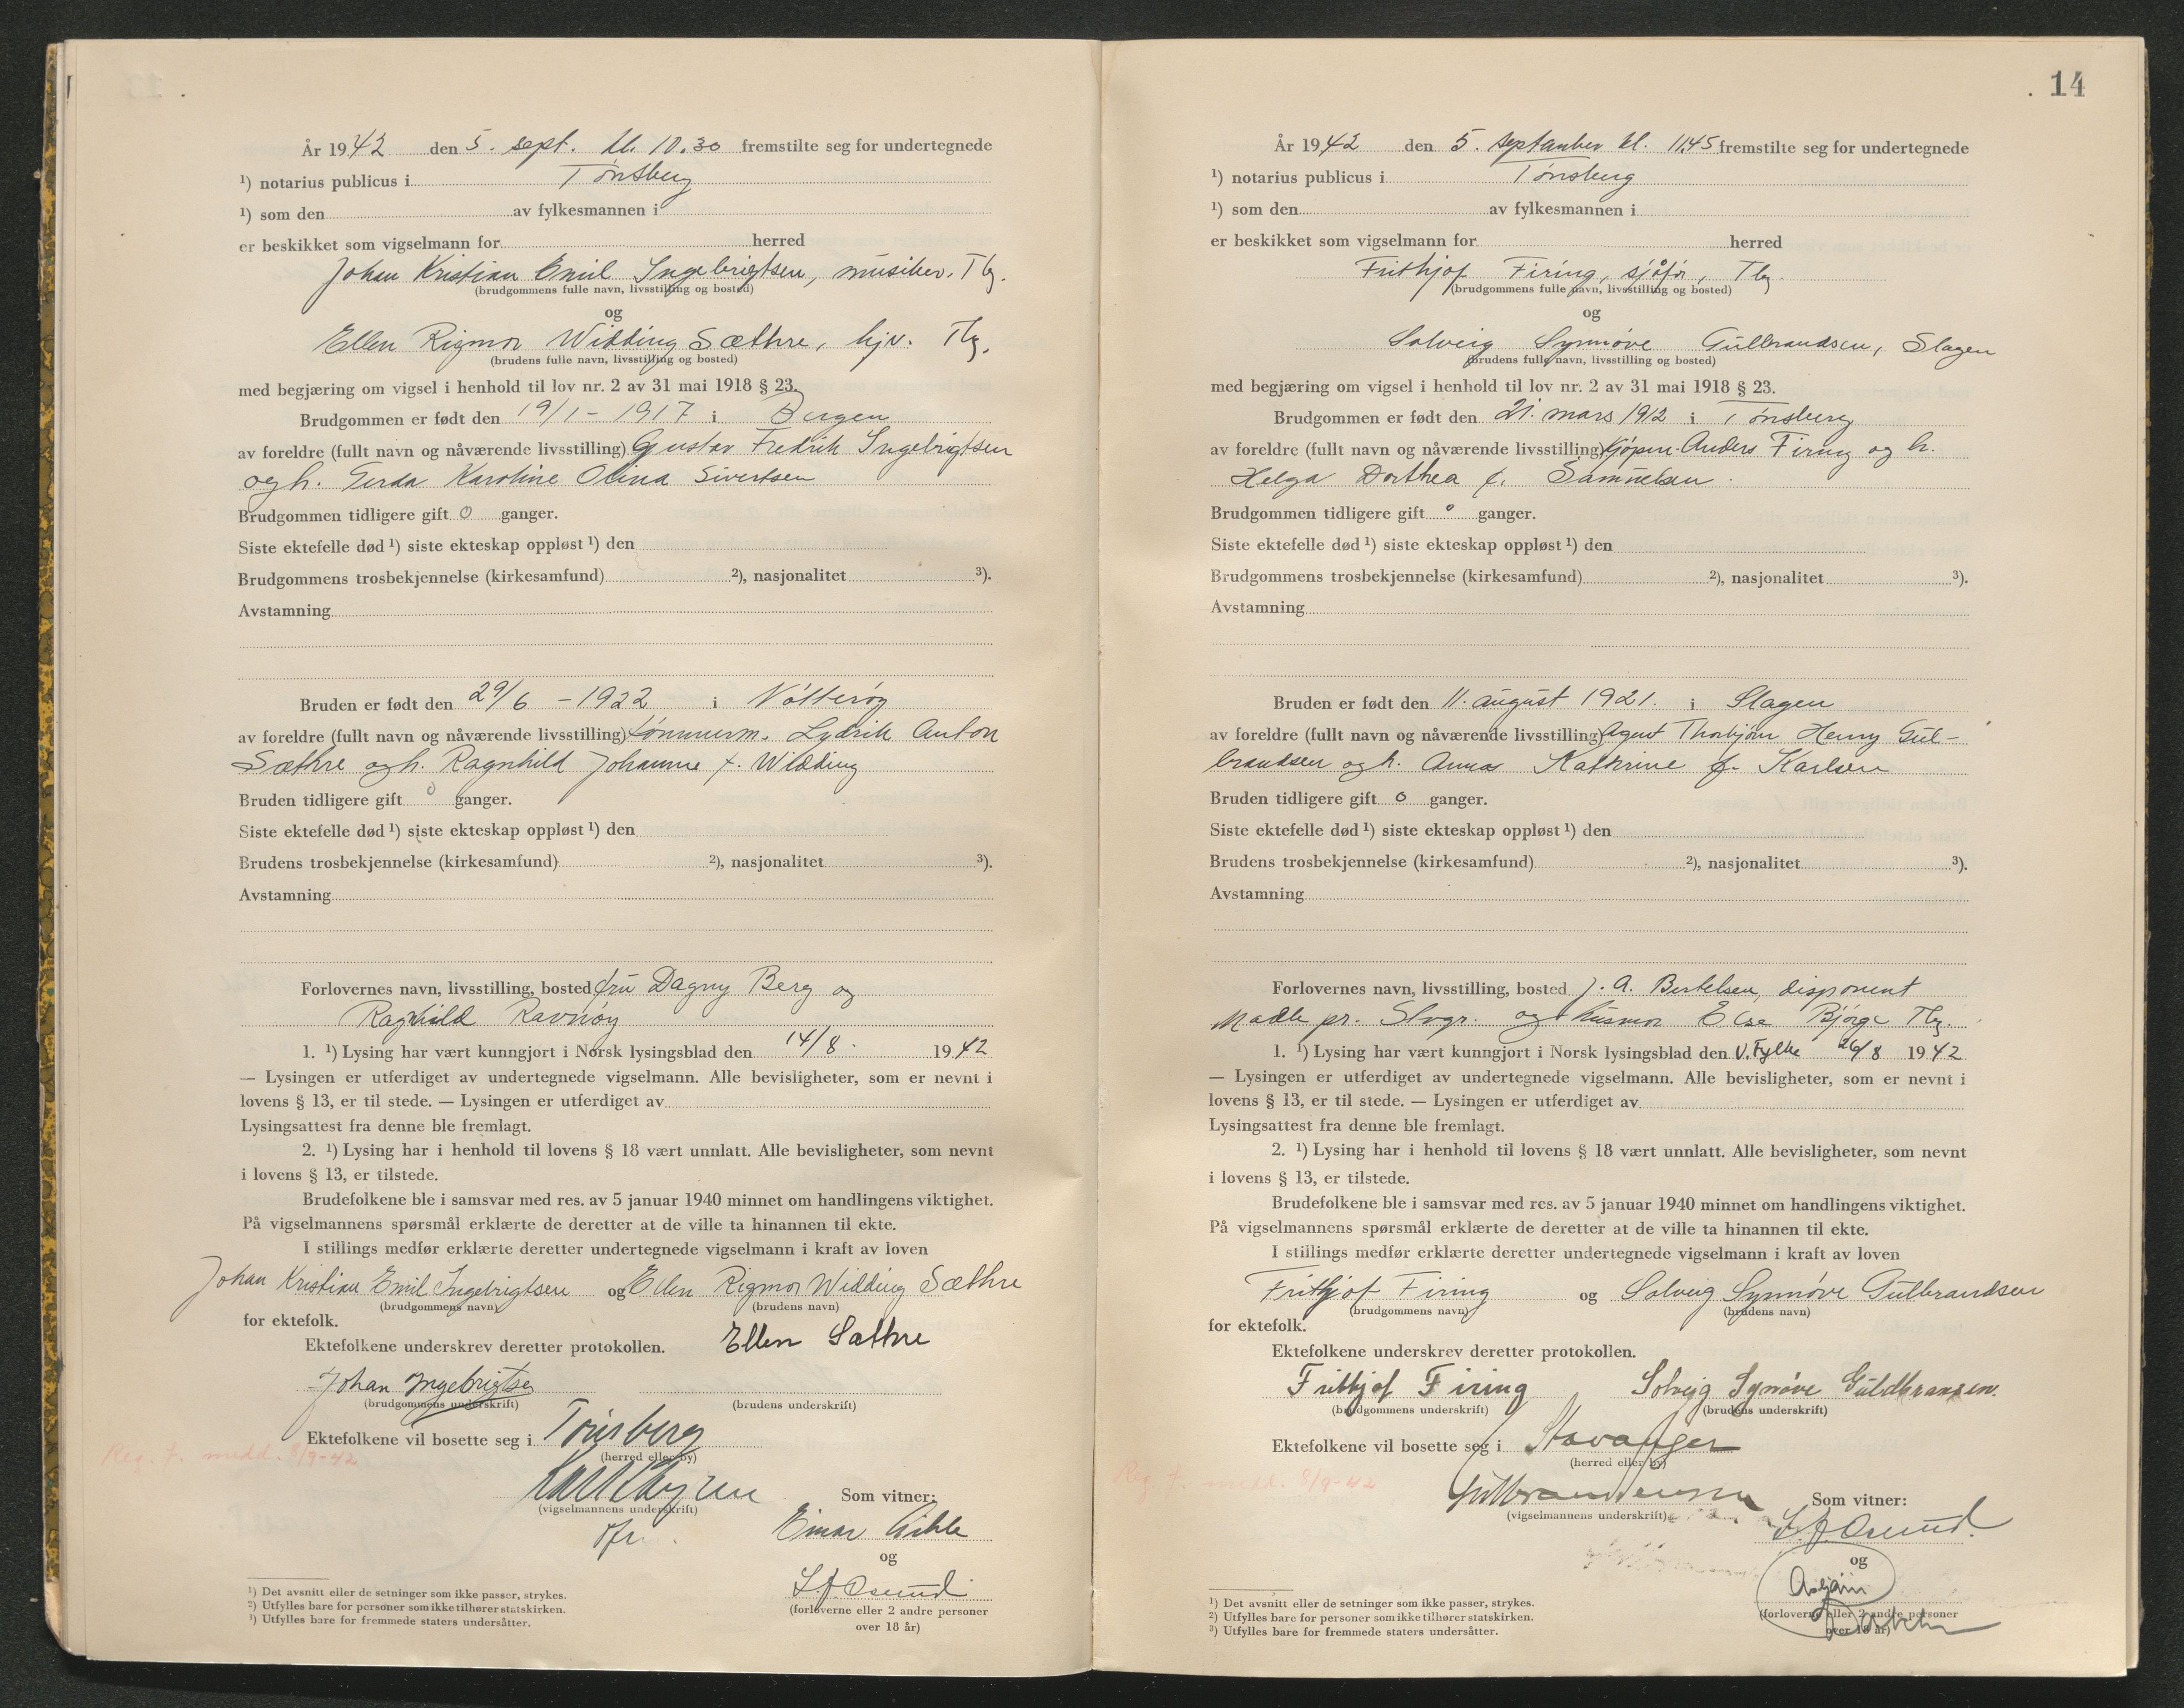 År 1942 den 5. sept. kl. 10.30 fremstilte seg for undertegnede
¹) notarius publicus i Tønsberg
¹) som den av fylkesmannen i
er beskikket som vigselmann for herred
Johan Kristian Emil Ingebrigtsen, musiker. Tbg.
(brudgommens fulle navn, livsstilling og bosted)
og
Ellen Rigmor Widding Sæthre, hjv. Tbg.
(brudens fulle navn, livsstilling og bosted)
med begjæring om vigsel i henhold til lov nr. 2 av 31 mai 1918 § 23.
Brudgommen er født den 19/1 - 1917 i Bergen
av foreldre (fullt navn og nåværende livsstilling) Gustav Fredrik Ingebrigtsen
og h. Gerda Karoline Olina Sivertsen
Brudgommen tidligere gift 0 ganger.
Siste ektefelle død ¹) siste ekteskap oppløst ¹) den
Brudgommens trosbekjennelse (kirkesamfund) ²), nasjonalitet ³).
Avstamning
Bruden er født den 29/6 - 1922 i Nøtterøy
av foreldre (fullt navn og nåværende livsstilling) tømmerm. Lydrik Anton
Sæthre og h. Ragnhild Johanne f. Widding
Bruden tidligere gift 0 ganger.
Siste ektefelle død ¹) siste ekteskap oppløst ¹) den
Brudens trosbekjennelse (kirkesamfund) ²), nasjonalitet ³).
Avstamning
Forlovernes navn, livsstilling, bosted fru Dagny Berg og
Ragnhild Ravnøy
1. ¹) Lysing har vært kunngjort i Norsk lysingsblad den 14/8. 1942
— Lysingen er utferdiget av undertegnede vigselmann. Alle bevisligheter, som er nevnt i
lovens § 13, er til stede. — Lysingen er utferdiget av
Lysingsattest fra denne ble fremlagt.
2. ¹) Lysing har i henhold til lovens § 18 vært unnlatt. Alle bevisligheter, som nevnt
i lovens § 13, er tilstede.
Brudefolkene ble i samsvar med res. av 5 januar 1940 minnet om handlingens viktighet.
På vigselmannens spørsmål erklærte de deretter at de ville ta hinannen til ekte.
I stillings medfør erklærte deretter undertegnede vigselmann i kraft av loven
Johan Kristian Emil Ingebrigtsen og Ellen Rigmor Widding Sæthre
(brudgommens navn) (brudens navn)
for ektefolk.
Ektefolkene underskrev deretter protokollen. Ellen Sæthre
Johan Ingebrigtsen
(brudgommens underskrift) (brudens underskrift)
Ektefolkene vil bosette seg i Tønsberg
(herred eller by)
Reg. f. medd. 8/9-42
(vigselmannens underskrift)
Som vitner:
Einar
og
L. A. Osmund
(forloverne eller 2 andre personer
over 18 år)
¹) Det avsnitt eller de setninger som ikke passer, strykes.
²) Utfylles bare for personer som ikke tilhører statskirken.
³) Utfylles bare for fremmede staters undersåtter.
14
År 1942 den 5. september kl. 11.45 fremstilte seg for undertegnede
¹) notarius publicus i Tønsberg
¹) som den av fylkesmannen i
er beskikket som vigselmann for herred
Frithjof Firing, sjåfør, Tbg.
(brudgommens fulle navn, livsstilling og bosted)
og
Solveig Synnøve Gulbrandsen, Slagen
(brudens fulle navn, livsstilling og bosted)
med begjæring om vigsel i henhold til lov nr. 2 av 31 mai 1918 § 23.
Brudgommen er født den 21. mars 1912 i Tønsberg
av foreldre (fullt navn og nåværende livsstilling) kjøpm. Anders Firing og h.
Helga Dorthea f. Samuelsen.
Brudgommen tidligere gift 0 ganger.
Siste ektefelle død ¹) siste ekteskap oppløst ¹) den
Brudgommens trosbekjennelse (kirkesamfund) ²), nasjonalitet ³).
Avstamning
Bruden er født den 11. august 1921. i Slagen
av foreldre (fullt navn og nåværende livsstilling) Agent Thorbjørn Henry Gul-
brandsen og h. Anna Kathrine f. Karlsen
Bruden tidligere gift 0 ganger.
Siste ektefelle død ¹) siste ekteskap oppløst ¹) den
Brudens trosbekjennelse (kirkesamfund) ²), nasjonalitet ³).
Avstamning
Forlovernes navn, livsstilling, bosted J. A. Bertelsen, disponent
Madla pr. Stvgr. og husmor Else Bjørge Tbg.
1. ¹) Lysing har vært kunngjort i Norsk lysingsblad den V. Fylke 26/8 1942
— Lysingen er utferdiget av undertegnede vigselmann. Alle bevisligheter, som er nevnt i
lovens § 13, er til stede. — Lysingen er utferdiget av
Lysingsattest fra denne ble fremlagt.
2. ¹) Lysing har i henhold til lovens § 18 vært unnlatt. Alle bevisligheter, som nevnt
i lovens § 13, er tilstede.
Brudefolkene ble i samsvar med res. av 5 januar 1940 minnet om handlingens viktighet.
På vigselmannens spørsmål erklærte de deretter at de ville ta hinannen til ekte.
I stillings medfør erklærte deretter undertegnede vigselmann i kraft av loven
Frithjof Firing og Solveig Synnøve Gulbrandsen
(brudgommens navn) (brudens navn)
for ektefolk.
Ektefolkene underskrev deretter protokollen.
Frithjof Firing Solveig Synnøve Guldbransen.
(brudgommens underskrift) (brudens underskrift)
Ektefolkene vil bosette seg i Stavanger
(herred eller by)
Reg. f. medd. 8/9-42
(vigselmannens underskrift)
Som vitner:
L. A. Osmund.
og
(forloverne eller 2 andre personer
over 18 år)
¹) Det avsnitt eller de setninger som ikke passer, strykes.
²) Utfylles bare for personer som ikke tilhører statskirken.
³) Utfylles bare for fremmede staters undersåtter.